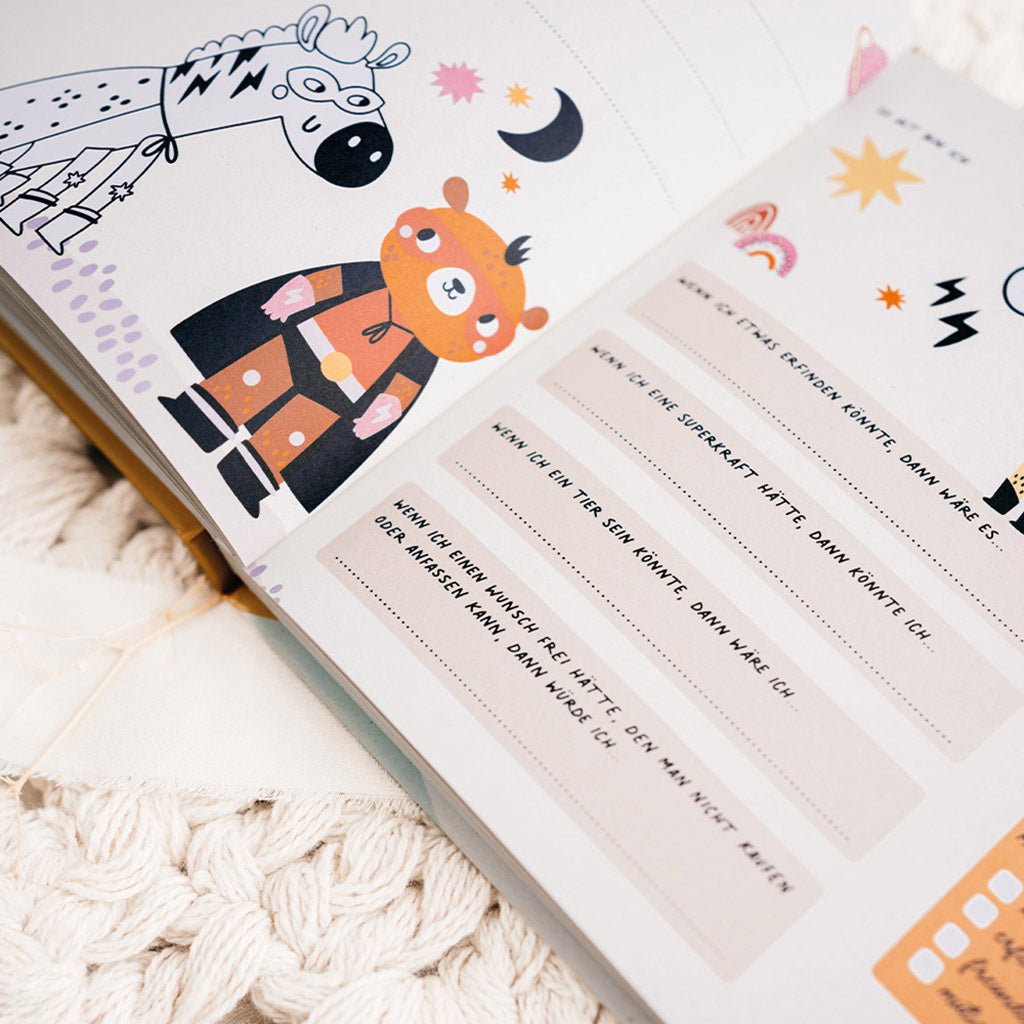 WENN ICH ETWAS ERFINDEN KÖNNTE, DANN WÄRE ES...
WENN ICH EINE SUPERKRAFT HÄTTE, DANN KÖNNTE ICH...
WENN ICH EIN TIER SEIN KÖNNTE, DANN WÄRE ICH...
WENN ICH EINEN WUNSCH FREI HÄTTE, DEN MAN NICHT KAUFEN
ODER ANFASSEN KANN, DANN WÜRDE ICH...